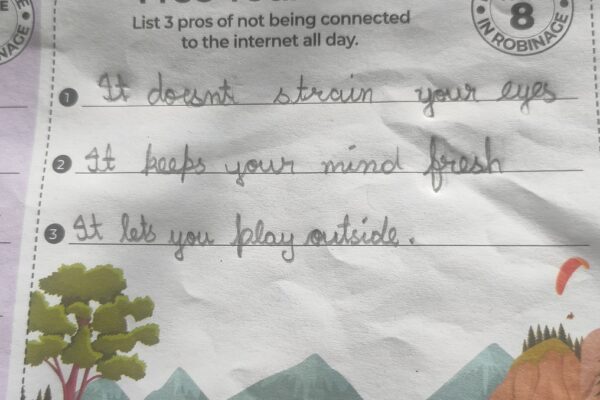 List 3 pros of not being connected
to the internet all day.
8
IN ROBINAGE
1 It doesnt strain your eyes
2 It keeps your mind fresh
3 It lets you play outside.